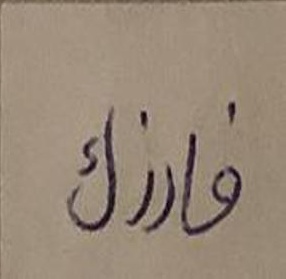 فارزك